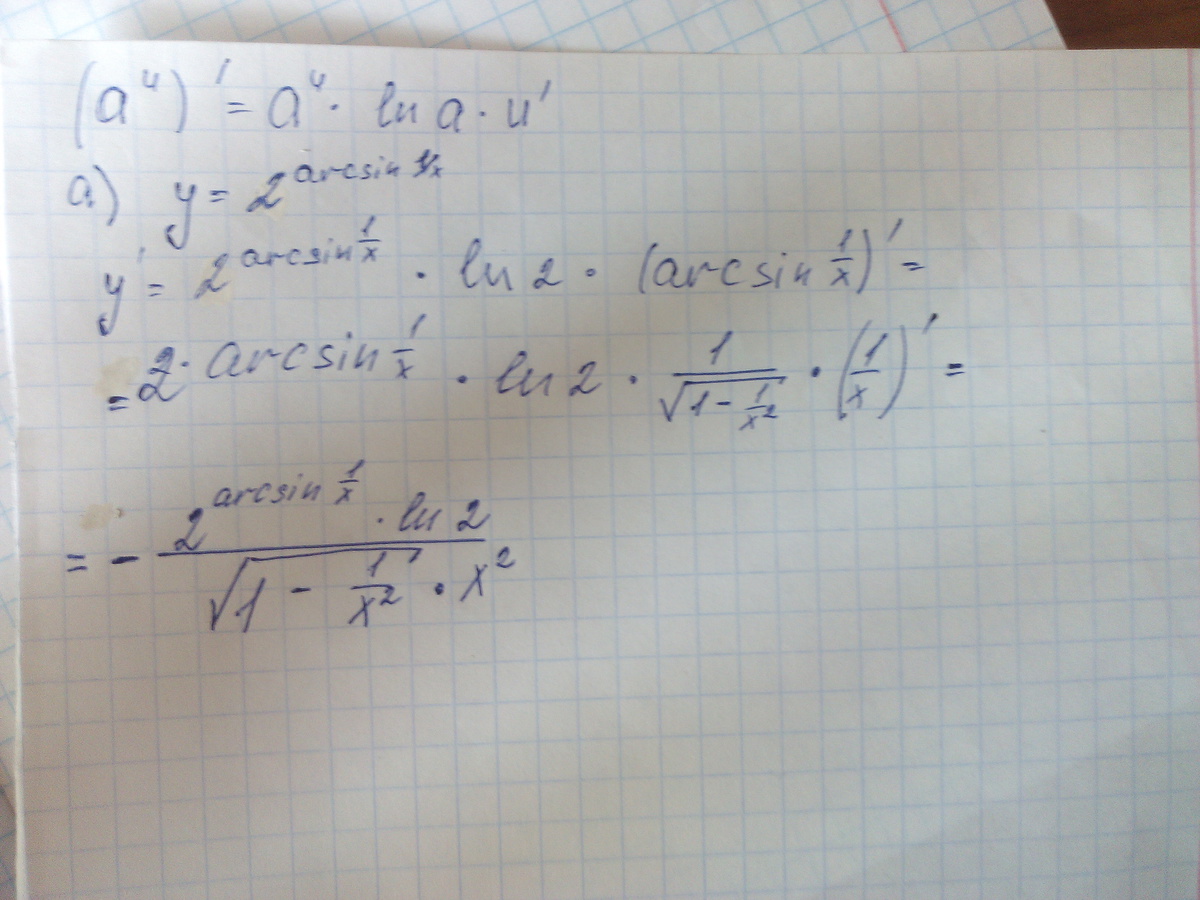 (a^u)' = a^u · ln a · u'
a) y = 2^{arcsin 1/x}
y' = 2^{arcsin \frac{1}{x}} · ln 2 · (arcsin \frac{1}{x})' =
= 2 · arcsin \frac{1}{x} · ln 2 · \frac{1}{\sqrt{1 - \frac{1}{x^2}}} · (\frac{1}{x})' =
= - \frac{2^{arcsin \frac{1}{x}} · ln 2}{\sqrt{1 - \frac{1}{x^2}} · x^2}